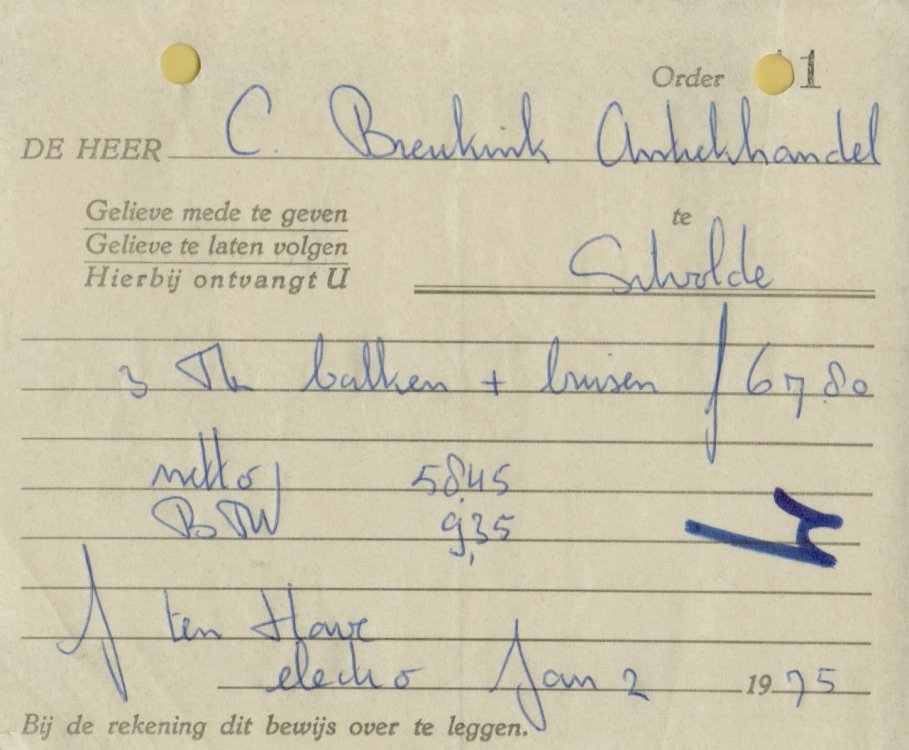 Order 1
DE HEER C. Breukink Antiekhandel
Gelieve mede te geven
Gelieve te laten volgen
Hierbij ontvangt U
te
Scholde
3 TL balken + buisen f 67,80
netto 58,45
BTW 9,35
J ten Have
electro Jan 2 1975
Bij de rekening dit bewijs over te leggen.